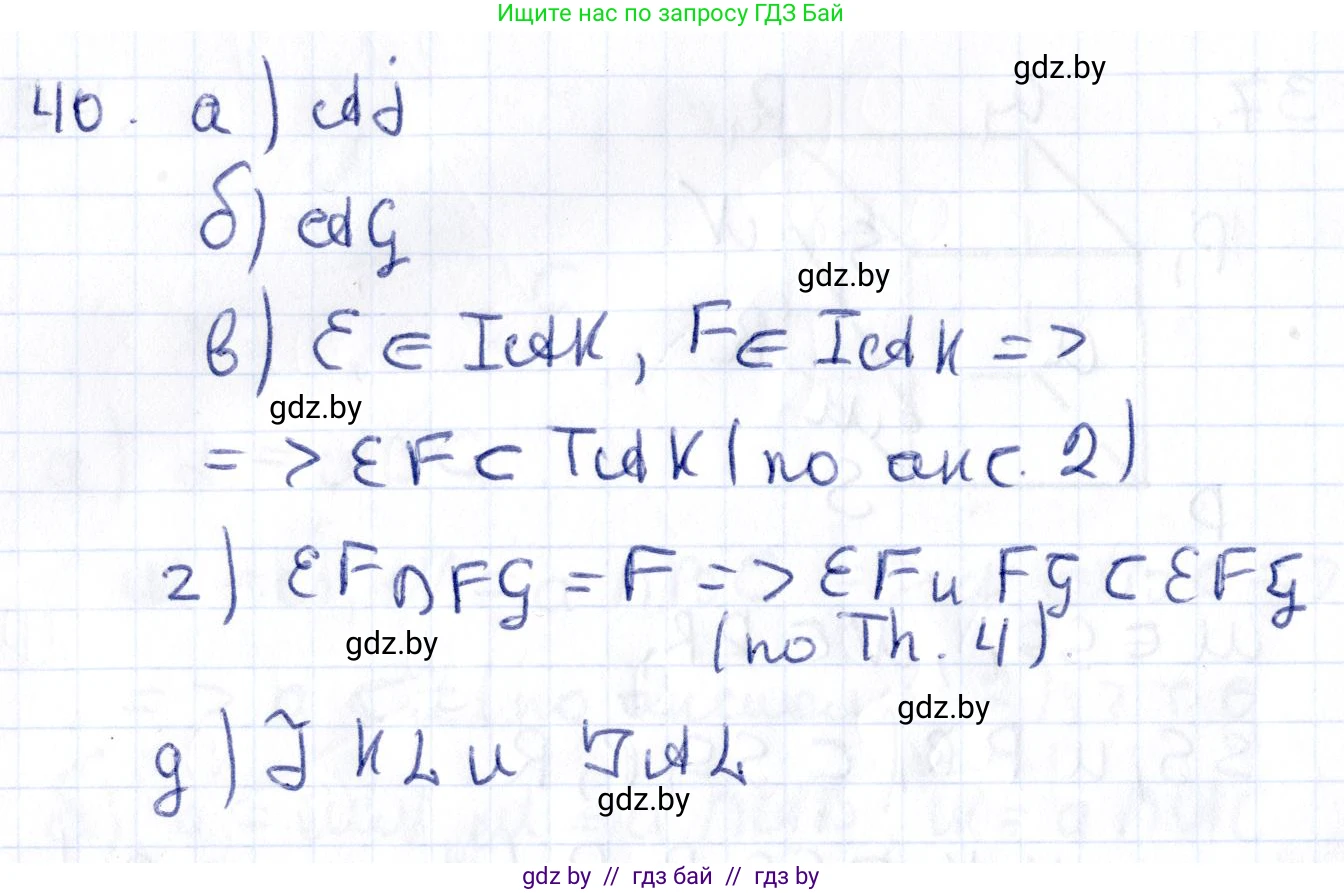 Ищите нас по запросу ГДЗ Бай
gdz.by
40. а) AJ
б) AG
gdz.by
в) E ∈ IAK, F ∈ IAK =>
gdz.by
=> EF ⊂ IAK (по акс. 2)
г) EF ∩ FG = F => EF и FG ⊂ EFG
gdz.by
(по Th. 4)
gdz.by
д) JKL и JAL
gdz.by
gdz by // гдз бай // гдз by